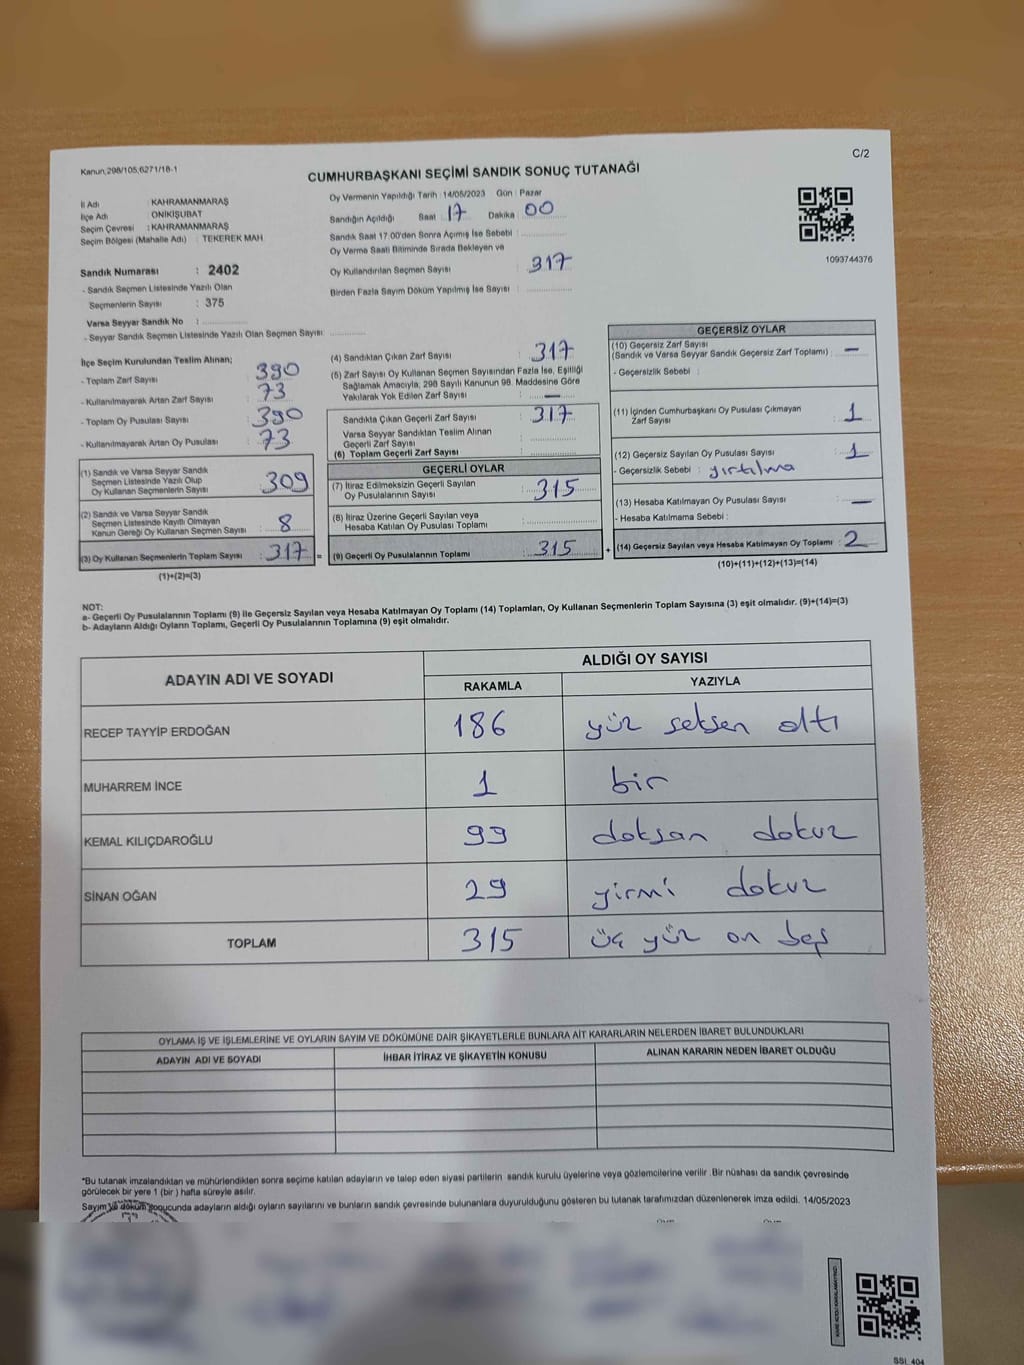 Kanun,298/105,6271/18-1
C/2
CUMHURBAŞKANI SEÇİMİ SANDIK SONUÇ TUTANAĞI
İl Adı : KAHRAMANMARAŞ
İlçe Adı : ONİKİŞUBAT
Seçim Çevresi : KAHRAMANMARAŞ
Seçim Bölgesi (Mahalle Adı) : TEKEREK MAH
Sandık Numarası : 2402
- Sandık Seçmen Listesinde Yazılı Olan
Seçmenlerin Sayısı : 375
Varsa Seyyar Sandık No :
- Seyyar Sandık Seçmen Listesinde Yazılı Olan Seçmen Sayısı:
Oy Vermenin Yapıldığı Tarih : 14/05/2023 Gün : Pazar
Sandığın Açıldığı Saat 17 Dakika 00
Sandık Saat 17.00'den Sonra Açımış İse Sebebi :
Oy Verme Saati Bitiminde Sırada Bekleyen ve
Oy Kullandırılan Seçmen Sayısı : 317
Birden Fazla Sayım Döküm Yapılmış İse Sayısı :
1093744376
İlçe Seçim Kurulundan Teslim Alınan;
- Toplam Zarf Sayısı : 390
- Kullanılmayarak Artan Zarf Sayısı : 73
- Toplam Oy Pusulası Sayısı : 390
- Kullanılmayarak Artan Oy Pusulası : 73
(1) Sandık ve Varsa Seyyar Sandık
Seçmen Listesinde Yazılı Olup
Oy Kullanan Seçmenlerin Sayısı : 309
(2) Sandık ve Varsa Seyyar Sandık
Seçmen Listesinde Kayıtlı Olmayan
Kanun Gereği Oy Kullanan Seçmen Sayısı : 8
(3) Oy Kullanan Seçmenlerin Toplam Sayısı : 317 =
(1)+(2)=(3)
(4) Sandıktan Çıkan Zarf Sayısı : 317
(5) Zarf Sayısı Oy Kullanan Seçmen Sayısından Fazla İse, Eşitliği
Sağlamak Amacıyla, 298 Sayılı Kanunun 98. Maddesine Göre
Yakılarak Yok Edilen Zarf Sayısı : —
Sandıkta Çıkan Geçerli Zarf Sayısı : 317
Varsa Seyyar Sandıktan Teslim Alınan
Geçerli Zarf Sayısı :
(6) Toplam Geçerli Zarf Sayısı :
GEÇERLİ OYLAR
(7) İtiraz Edilmeksizin Geçerli Sayılan
Oy Pusulalarının Sayısı : 315
(8) İtiraz Üzerine Geçerli Sayılan veya
Hesaba Katılan Oy Pusulası Toplamı :
(9) Geçerli Oy Pusulalarının Toplamı : 315 +
GEÇERSİZ OYLAR
(10) Geçersiz Zarf Sayısı
(Sandık ve Varsa Seyyar Sandık Geçersiz Zarf Toplamı) : —
- Geçersizlik Sebebi :
(11) İçinden Cumhurbaşkanı Oy Pusulası Çıkmayan
Zarf Sayısı : 1
(12) Geçersiz Sayılan Oy Pusulası Sayısı : 1
- Geçersizlik Sebebi : yırtılma
(13) Hesaba Katılmayan Oy Pusulası Sayısı : —
- Hesaba Katılmama Sebebi :
(14) Geçersiz Sayılan veya Hesaba Katılmayan Oy Toplamı : 2
(10)+(11)+(12)+(13)=(14)
NOT:
a- Geçerli Oy Pusulalarının Toplamı (9) ile Geçersiz Sayılan veya Hesaba Katılmayan Oy Toplamı (14) Toplamları, Oy Kullanan Seçmenlerin Toplam Sayısına (3) eşit olmalıdır. (9)+(14)=(3)
b- Adayların Aldığı Oyların Toplamı, Geçerli Oy Pusulalarının Toplamına (9) eşit olmalıdır.
ADAYIN ADI VE SOYADI
ALDIĞI OY SAYISI
RAKAMLA YAZIYLA
RECEP TAYYİP ERDOĞAN 186 yüz seksen altı
MUHARREM İNCE 1 bir
KEMAL KILIÇDAROĞLU 99 doksan dokuz
SİNAN OĞAN 29 yirmi dokuz
TOPLAM 315 üç yüz on beş
OYLAMA İŞ VE İŞLEMLERİNE VE OYLARIN SAYIM VE DÖKÜMÜNE DAİR ŞİKAYETLERLE BUNLARA AİT KARARLARIN NELERDEN İBARET BULUNDUKLARI
ADAYIN ADI VE SOYADI İHBAR İTİRAZ VE ŞİKAYETİN KONUSU ALINAN KARARIN NEDEN İBARET OLDUĞU
*Bu tutanak imzalandıktan ve mühürlendikten sonra seçime katılan adayların ve talep eden siyasi partilerin sandık kurulu üyelerine veya gözlemcilerine verilir .Bir nüshası da sandık çevresinde
görülecek bir yere 1 (bir ) hafta süreyle asılır.
Sayım ve döküm sonucunda adayların aldığı oyların sayılarını ve bunların sandık çevresinde bulunanlara duyurulduğunu gösteren bu tutanak tarafımızdan düzenlenerek imza edildi. 14/05/2023
KARE KODU KARALAMAYINIZ!
SSI_404